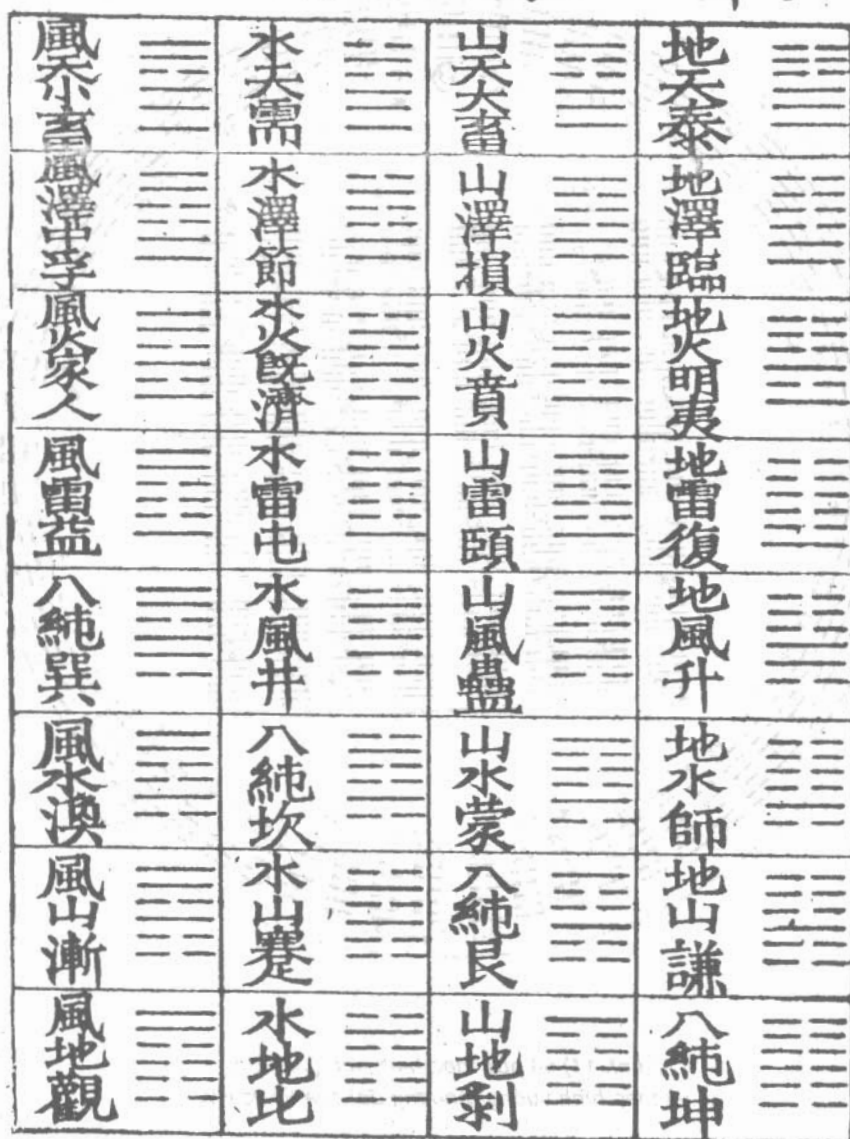 地天泰
地澤臨
地火明夷
地雷復
地風升
地水師
地山謙
八純坤
山天大畜
山澤損
山火賁
山雷頤
山風蠱
山水蒙
八純艮
山地剥
水天需
水澤節
水火既濟
水雷屯
水風井
八純坎
水山蹇
水地比
風天小畜
風澤中孚
風火家人
風雷益
八純巽
風水渙
風山漸
風地觀